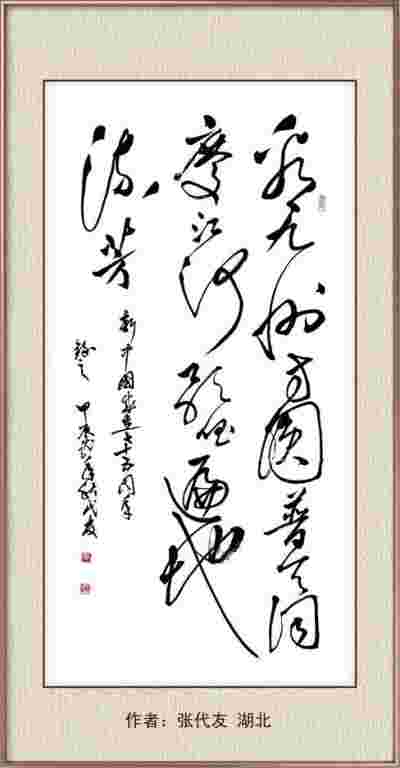 看九州方圆普天同
庆江河遍地
流芳
新中國成立七十五周年
甲辰秋代友
作者：张代友 湖北